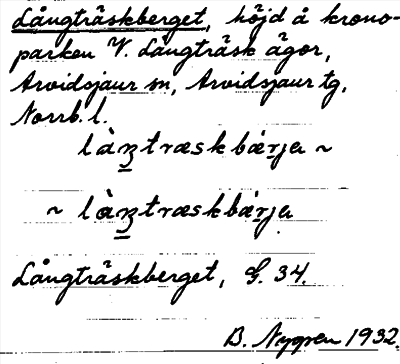 Långträskberget, höjd å krono-
parken V. Långträsk ägor,
Arvidsjaur sn, Arvidsjaur tg,
Norrb. l.
làn̠træskbær̠ja ~
~ làn̠træskbær̠ja
Långträskberget, G. 34.
B. Nygren 1932.